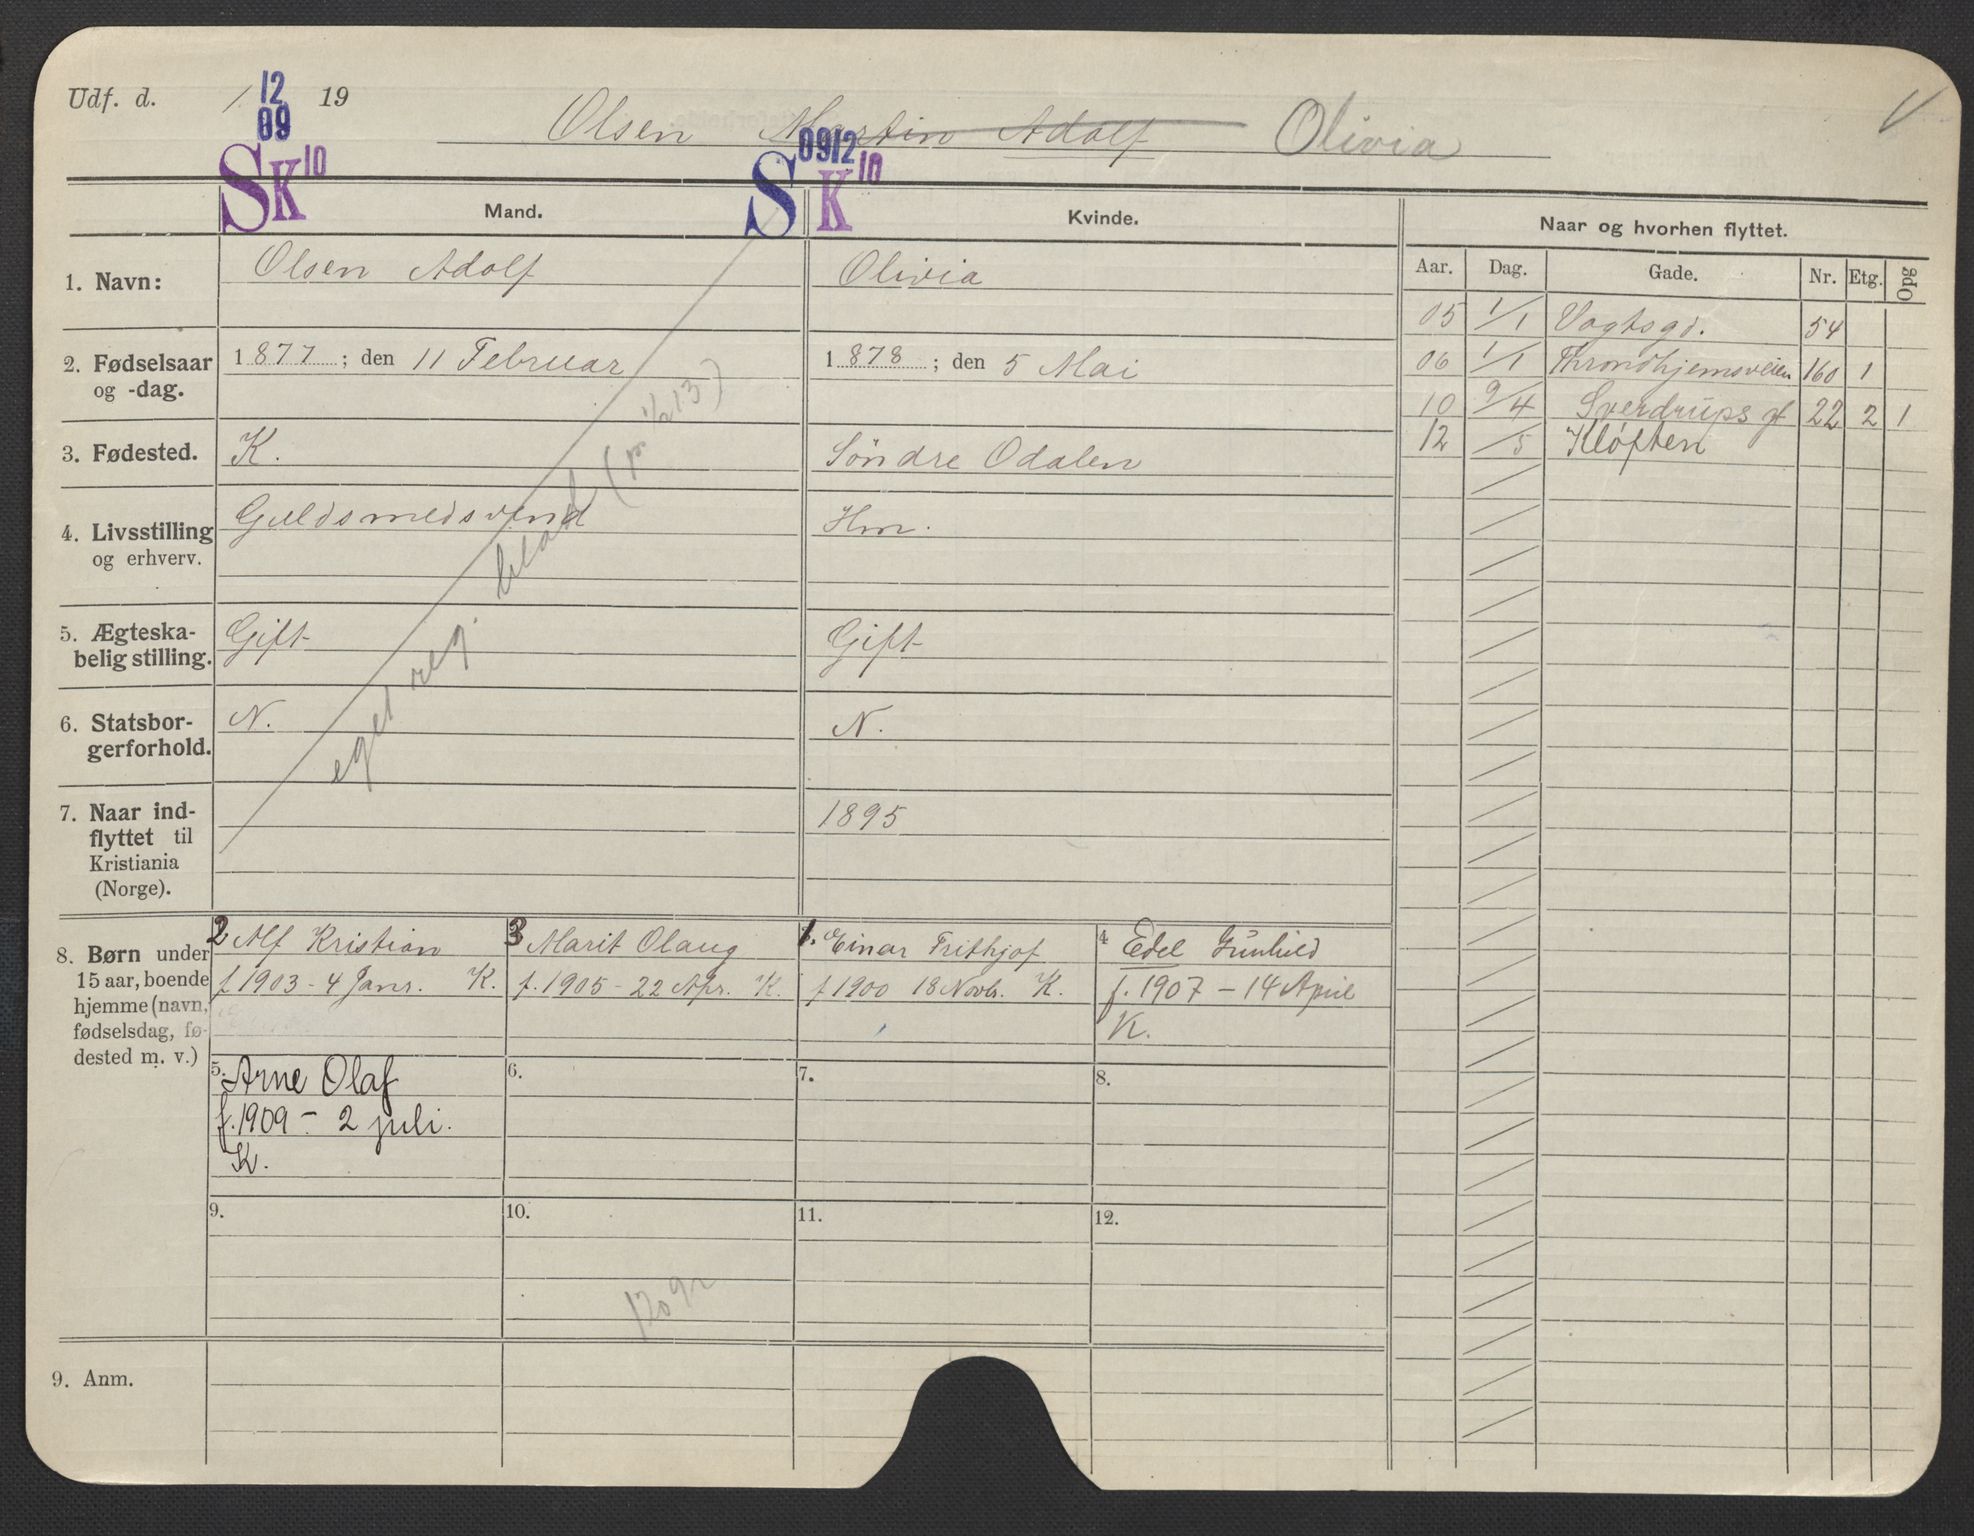 Udf. d. 1. 12 09 19
Olsen Martin Adolf Olivia
SK 10
S 0912 K 10
Mand.
Kvinde.
Naar og hvorhen flyttet.
Aar. Dag. Gade. Nr. Etg. Opg
05 1/1 Vogtsgd. 54
06 1/1 Throndhjemsveien 160 1
10 9/4 Sverdrups gt 22 2 1
12 /5 Kløften
1. Navn: Olsen Adolf
Olivia
2. Fødselsaar og -dag.
1877; den 11 Februar
1878; den 5 Mai
3. Fødested. K.
Søndre Odalen
4. Livsstilling og erhverv.
Guldsmedsvend
Hm.
5. Ægteskabelig stilling.
Gift
Gift
6. Statsborgerforhold.
N.
N.
eget reg. blad (pr 1/2 13)
7. Naar indflyttet til Kristiania (Norge).
1895
8. Børn under
15 aar, boende
hjemme (navn,
fødselsdag, fø-
dested m. v.)
2 Alf Kristian
f 1903 - 4 Janr. K.
3 Marit Olaug
f. 1905 - 22 Apr. K.
1. Einar Frithjof
f 1900 18 Novbr. K.
4 Edel Gunhild
f. 1907 - 14 April
K.
5. Arne Olaf
f. 1909 - 2 juli.
K.
6.
7.
8.
9.
10.
11.
12.
9. Anm.